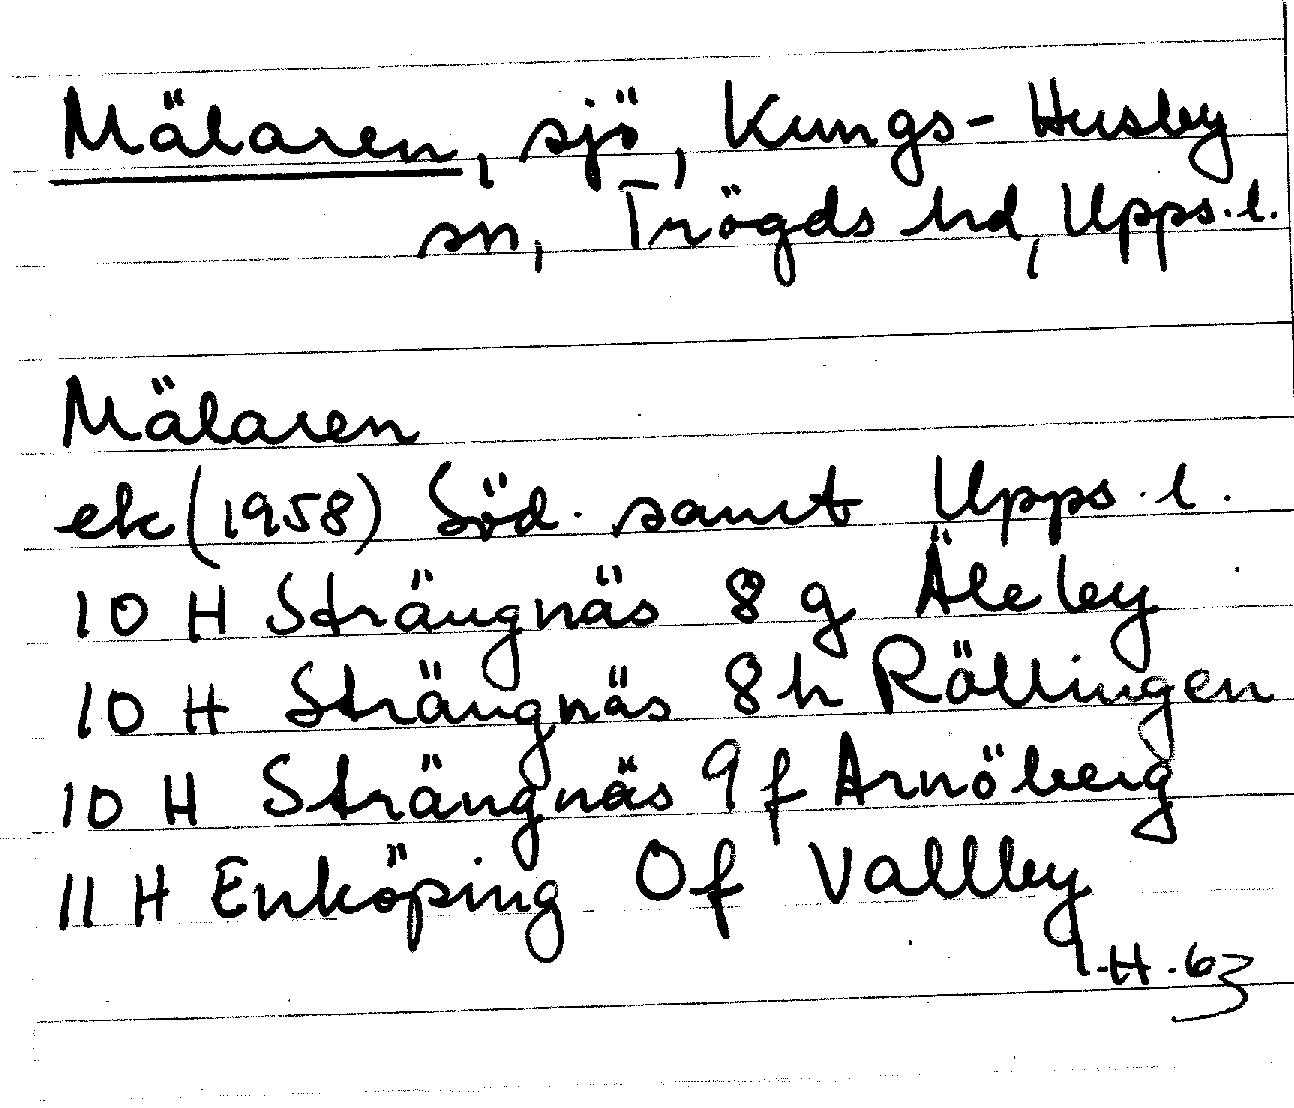 Mälaren, sjö, Kungs-Husby
sn, Trögds hd, Upps. l.
Mälaren
ek (1958) Söd. samt Upps. l.
10 H Strängnäs 8 g Äleby
10 H Strängnäs 8 h Rällingen
10 H Strängnäs 9 f Arnöberg
11 H Enköping 0f Vallby
I.H. 63